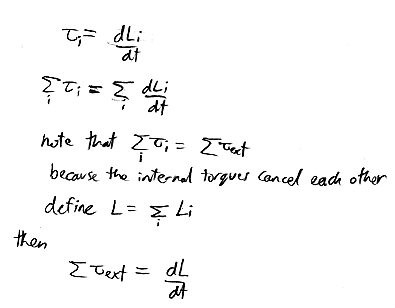 τᵢ = dLᵢ/dt
Σᵢ τᵢ = Σᵢ dLᵢ/dt
note that Σᵢ τᵢ = Σ τext
because the internal torques cancel each other
define L = Σᵢ Lᵢ
then
Σ τext = dL/dt